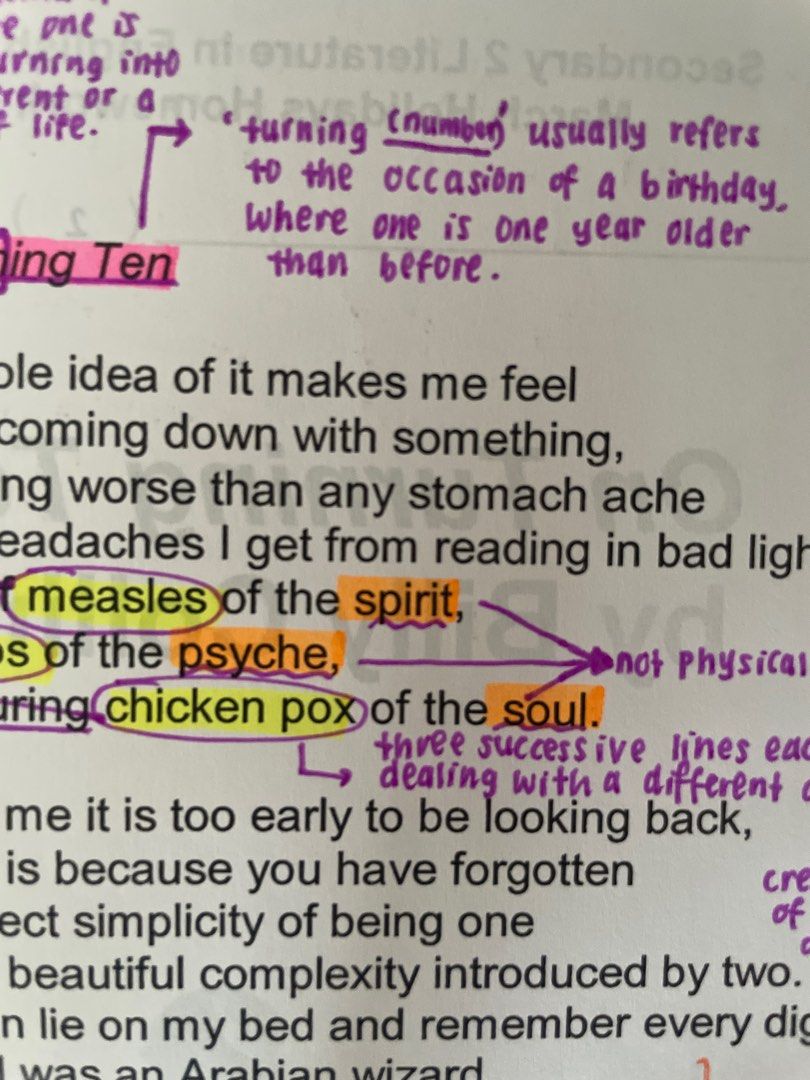 e one is
urning into
rent or a
life.
'turning (number)' usually refers
to the occasion of a birthday,
where one is one year older
than before.
ing Ten
ole idea of it makes me feel
coming down with something,
ng worse than any stomach ache
eadaches I get from reading in bad ligh
f measles of the spirit,
ps of the psyche,
not physical
uring chicken pox of the soul.
three successive lines eac
dealing with a different
me it is too early to be looking back,
is because you have forgotten
cre
ect simplicity of being one
of
beautiful complexity introduced by two.
n lie on my bed and remember every dig
I was an Arabian wizard